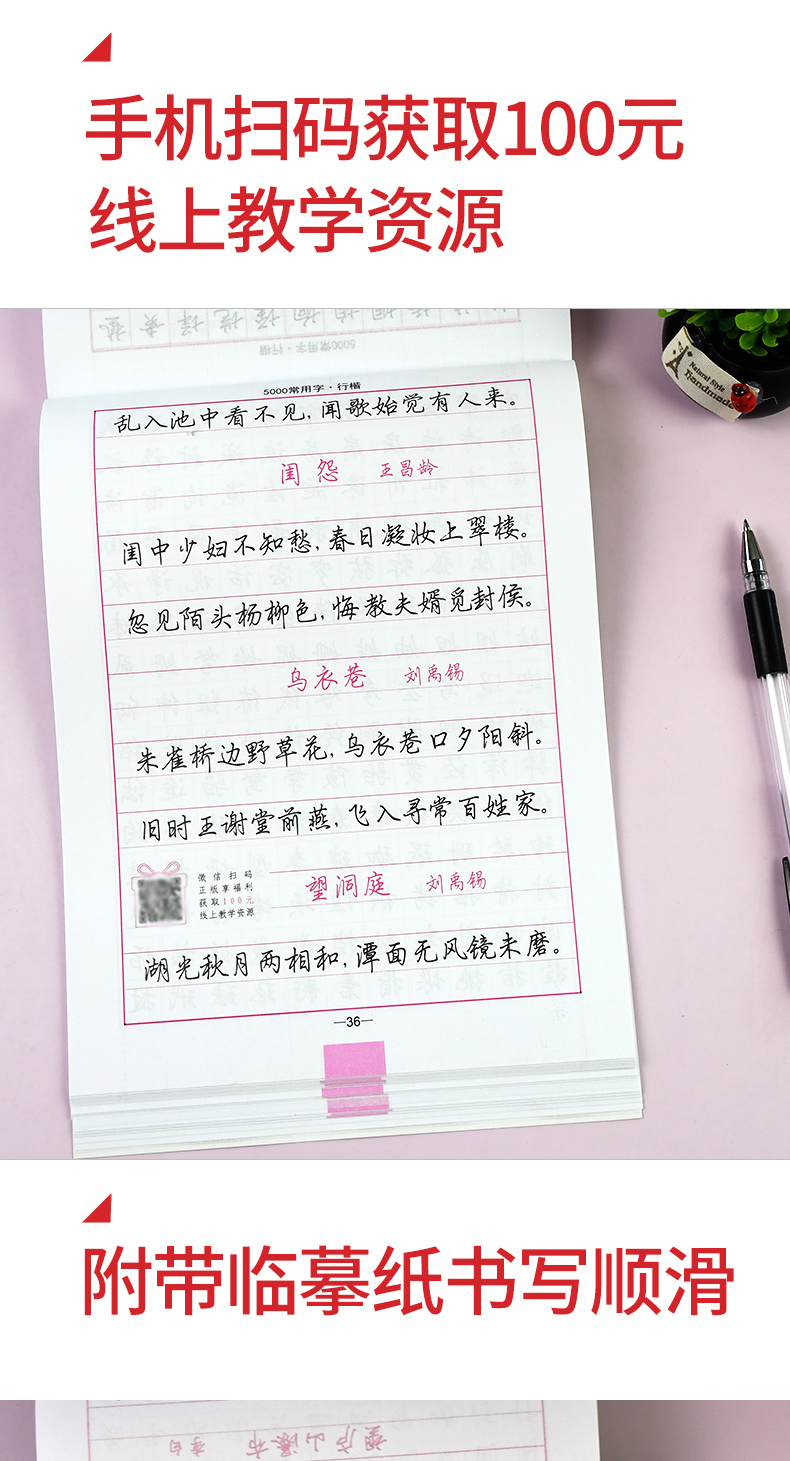 手机扫码获取100元
线上教学资源
5000常用字·行楷
乱入池中看不见,闻歌始觉有人来。
闺怨 王昌龄
闺中少妇不知愁,春日凝妆上翠楼。
忽见陌头杨柳色,悔教夫婿觅封侯。
乌衣巷 刘禹锡
朱雀桥边野草花,乌衣巷口夕阳斜。
旧时王谢堂前燕,飞入寻常百姓家。
微信扫码
正版享福利
获取100元
线上教学资源
望洞庭 刘禹锡
湖光秋月两相和,潭面无风镜未磨。
—36—
Natural Style
Handmade
附带临摹纸书写顺滑
望庐山瀑布 李白